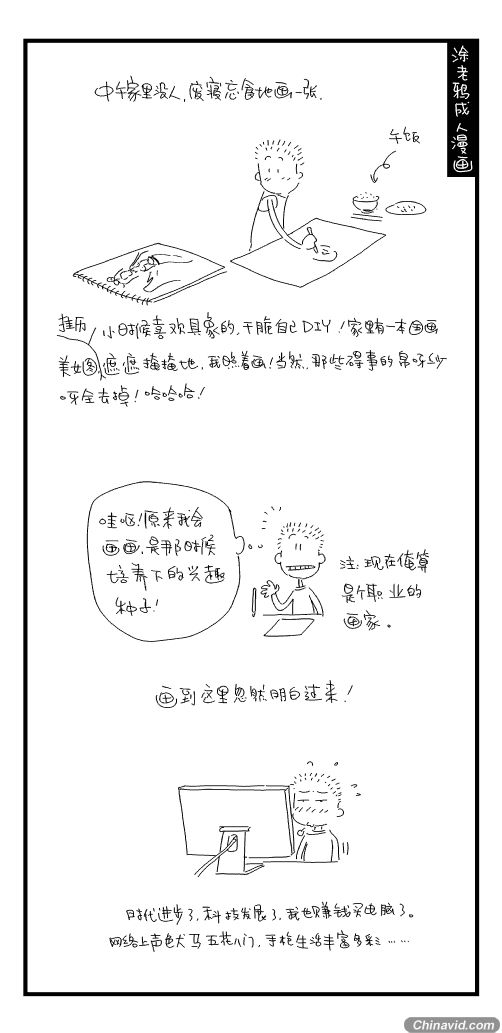 涂老鸦成人漫画
中午家里没人,废寝忘食地画一张.
午饭
小时候喜欢具象的,干脆自己DIY!家里有一本国画
挂历
美女图,遮遮掩掩地,我照着画!当然,那些碍事的帛呀纱
呀全去掉!哈哈哈!
哇呕!原来我会
画画,是那时候
培养下的兴趣
种子!
注:现在俺算
是个职业的
画家。
画到这里忽然明白过来!
时代进步了,科技发展了,我也赚钱买电脑了。
网络上声色犬马五花八门,手枪生活丰富多彩……
Chinavid.com